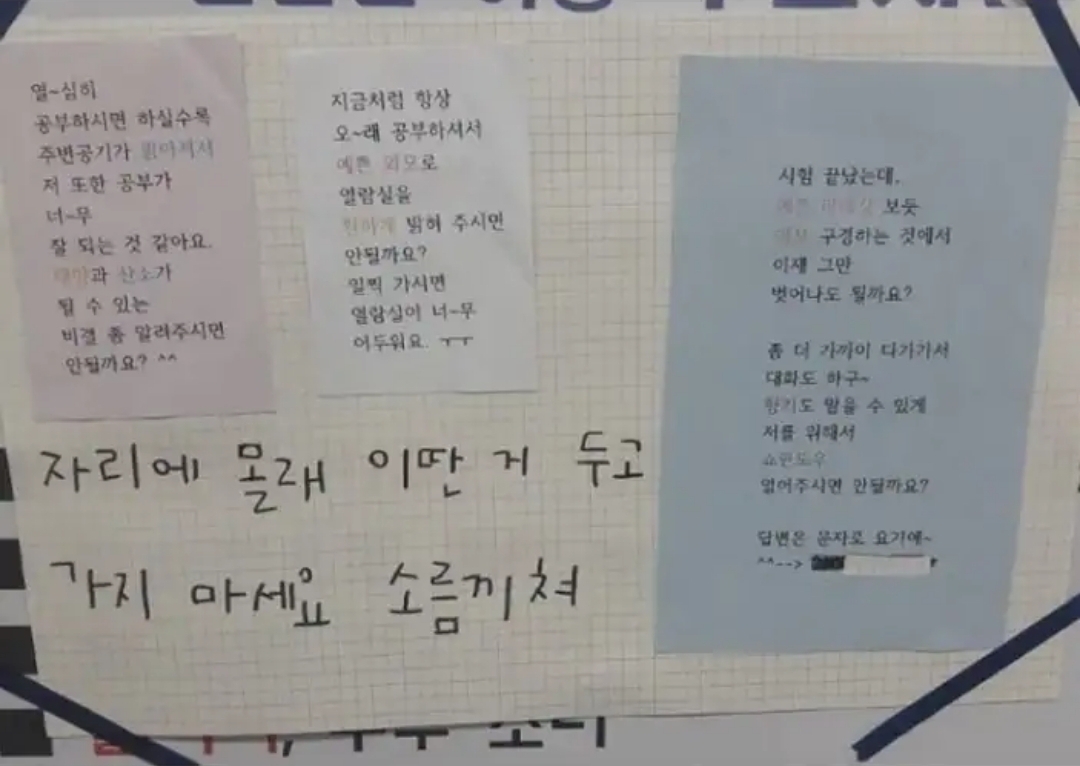 열~심히
공부하시면 하실수록
주변공기가 맑아져서
저 또한 공부가
너~무
잘 되는 것 같아요.
태양과 산소가
될 수 있는
비결 좀 알려주시면
안될까요? ^^
지금처럼 항상
오~래 공부하셔서
예쁜 외모로
열람실을
환하게 밝혀 주시면
안될까요?
일찍 가시면
열람실이 너~무
어두워요. ㅜㅜ
시험 끝났는데,
예쁜 보듯
구경하는 것에서
이제 그만
벗어나도 될까요?
좀 더 가까이 다가가서
대화도 하구~
향기도 맡을 수 있게
저를 위해서
쇼윈도우
열어주시면 안될까요?
답변은 문자로 요기에~
^^-->
자리에 몰래 이딴 거 두고
가지 마세요 소름끼쳐